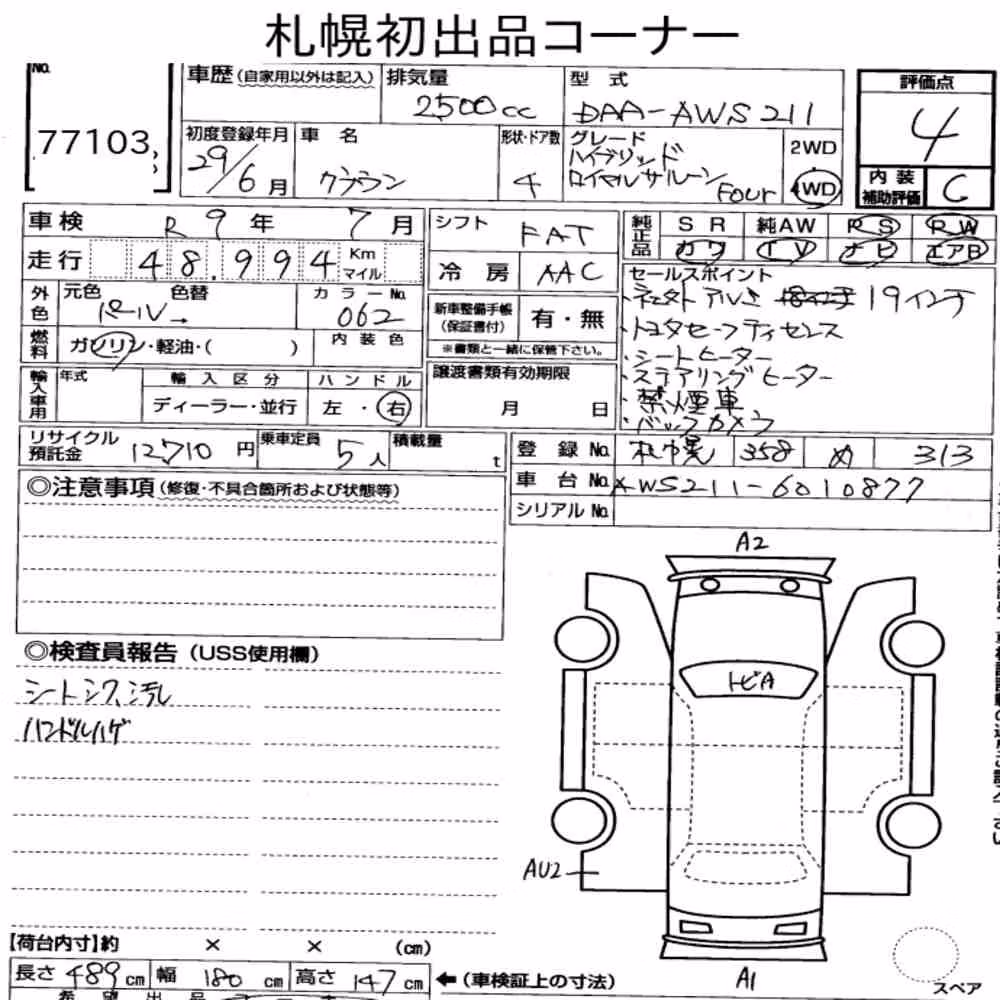 札幌初出品コーナー
No.
77103
車歴(自家用以外は記入)
排気量
2500cc
型式
DAA-AWS211
評価点
4
内装
補助評価
C
初度登録年月
29/6月
車名
クラウン
形状・ドア数
4
グレード
ハイブリッド
ロイヤルサルーン Four
2WD
4WD
車検
R9年7月
走行
48,994
Km
マイル
シフト
FAT
冷房
AAC
純正品
SR
純AW
RS
RW
カワ
TV
ナビ
エアB
外色
元色
色替
パール→
カラーNo.
062
燃料
ガソリン・軽油・( )
内装色
新車整備手帳
(保証書付)
有・無
※書類と一緒に保管下さい。
セールスポイント
19インチ
・トヨタセーフティセンス
・シートヒーター
・ステアリングヒーター
・禁煙車
・バックカメラ
輸入車用
年式
輸入区分
ディーラー・並行
ハンドル
左・右
譲渡書類有効期限
月 日
リサイクル
預託金
12,710円
乗車定員
5人
積載量
t
登録No.
札幌 358 め 313
車台No.
AWS211-6010877
シリアルNo.
◎注意事項(修復・不具合箇所および状態等)
◎検査員報告(USS使用欄)
シートシワ、汚れ
ハンドルハゲ
A2
トビA
AU2
A1
スペア
【荷台内寸】約 × × (cm)
長さ 489cm
幅 180cm
高さ 147cm
←(車検証上の寸法)
希望出品